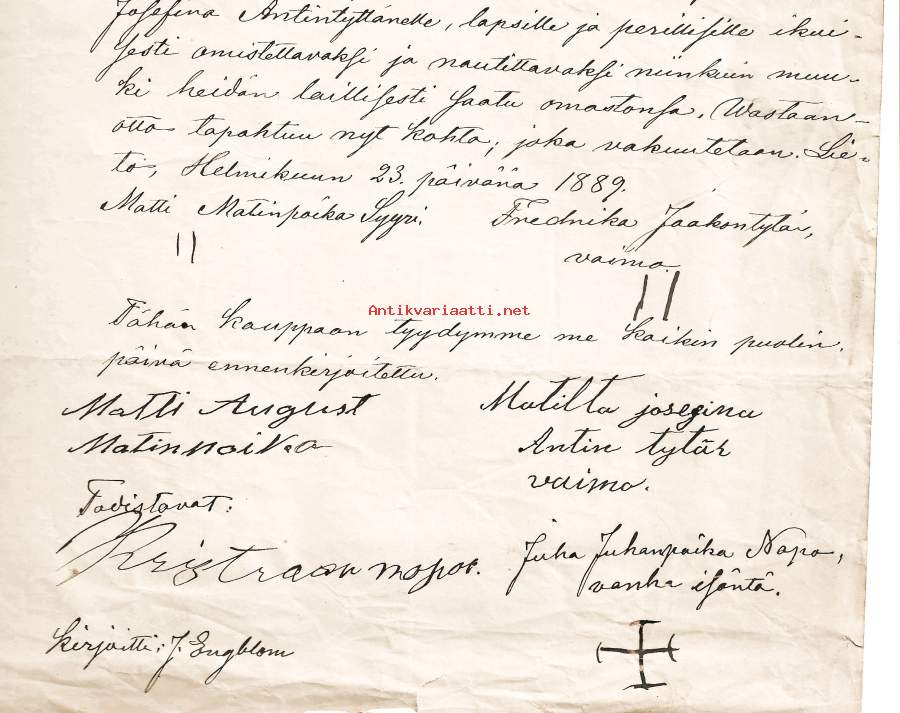 Josefina Antintyttärelle, lapsille ja perillisille ikui-
sesti omistettavaksi ja nautittavaksi niinkuin muu-
ki heidän laillisesti saatu omastonsa. Wastaan-
otto tapahtuu nyt kohta; joka vakuutetaan. Lie-
to, Helmikuun 23. päivänä 1889.
Matti Matinpoika Syyri. Fredrika Jaakontytär,
vaimo.
Antikvariaatti.net
Tähän kauppaan tyydymme me kaikin puolin,
päivä ennenkirjoitettu.
Matti August Matilta josefina
Matinpoika Antin tytär
vaimo.
Todistavat:
Juha Juhanpoika Napo,
vanha isäntä.
Kirjoitti; J. Engblom